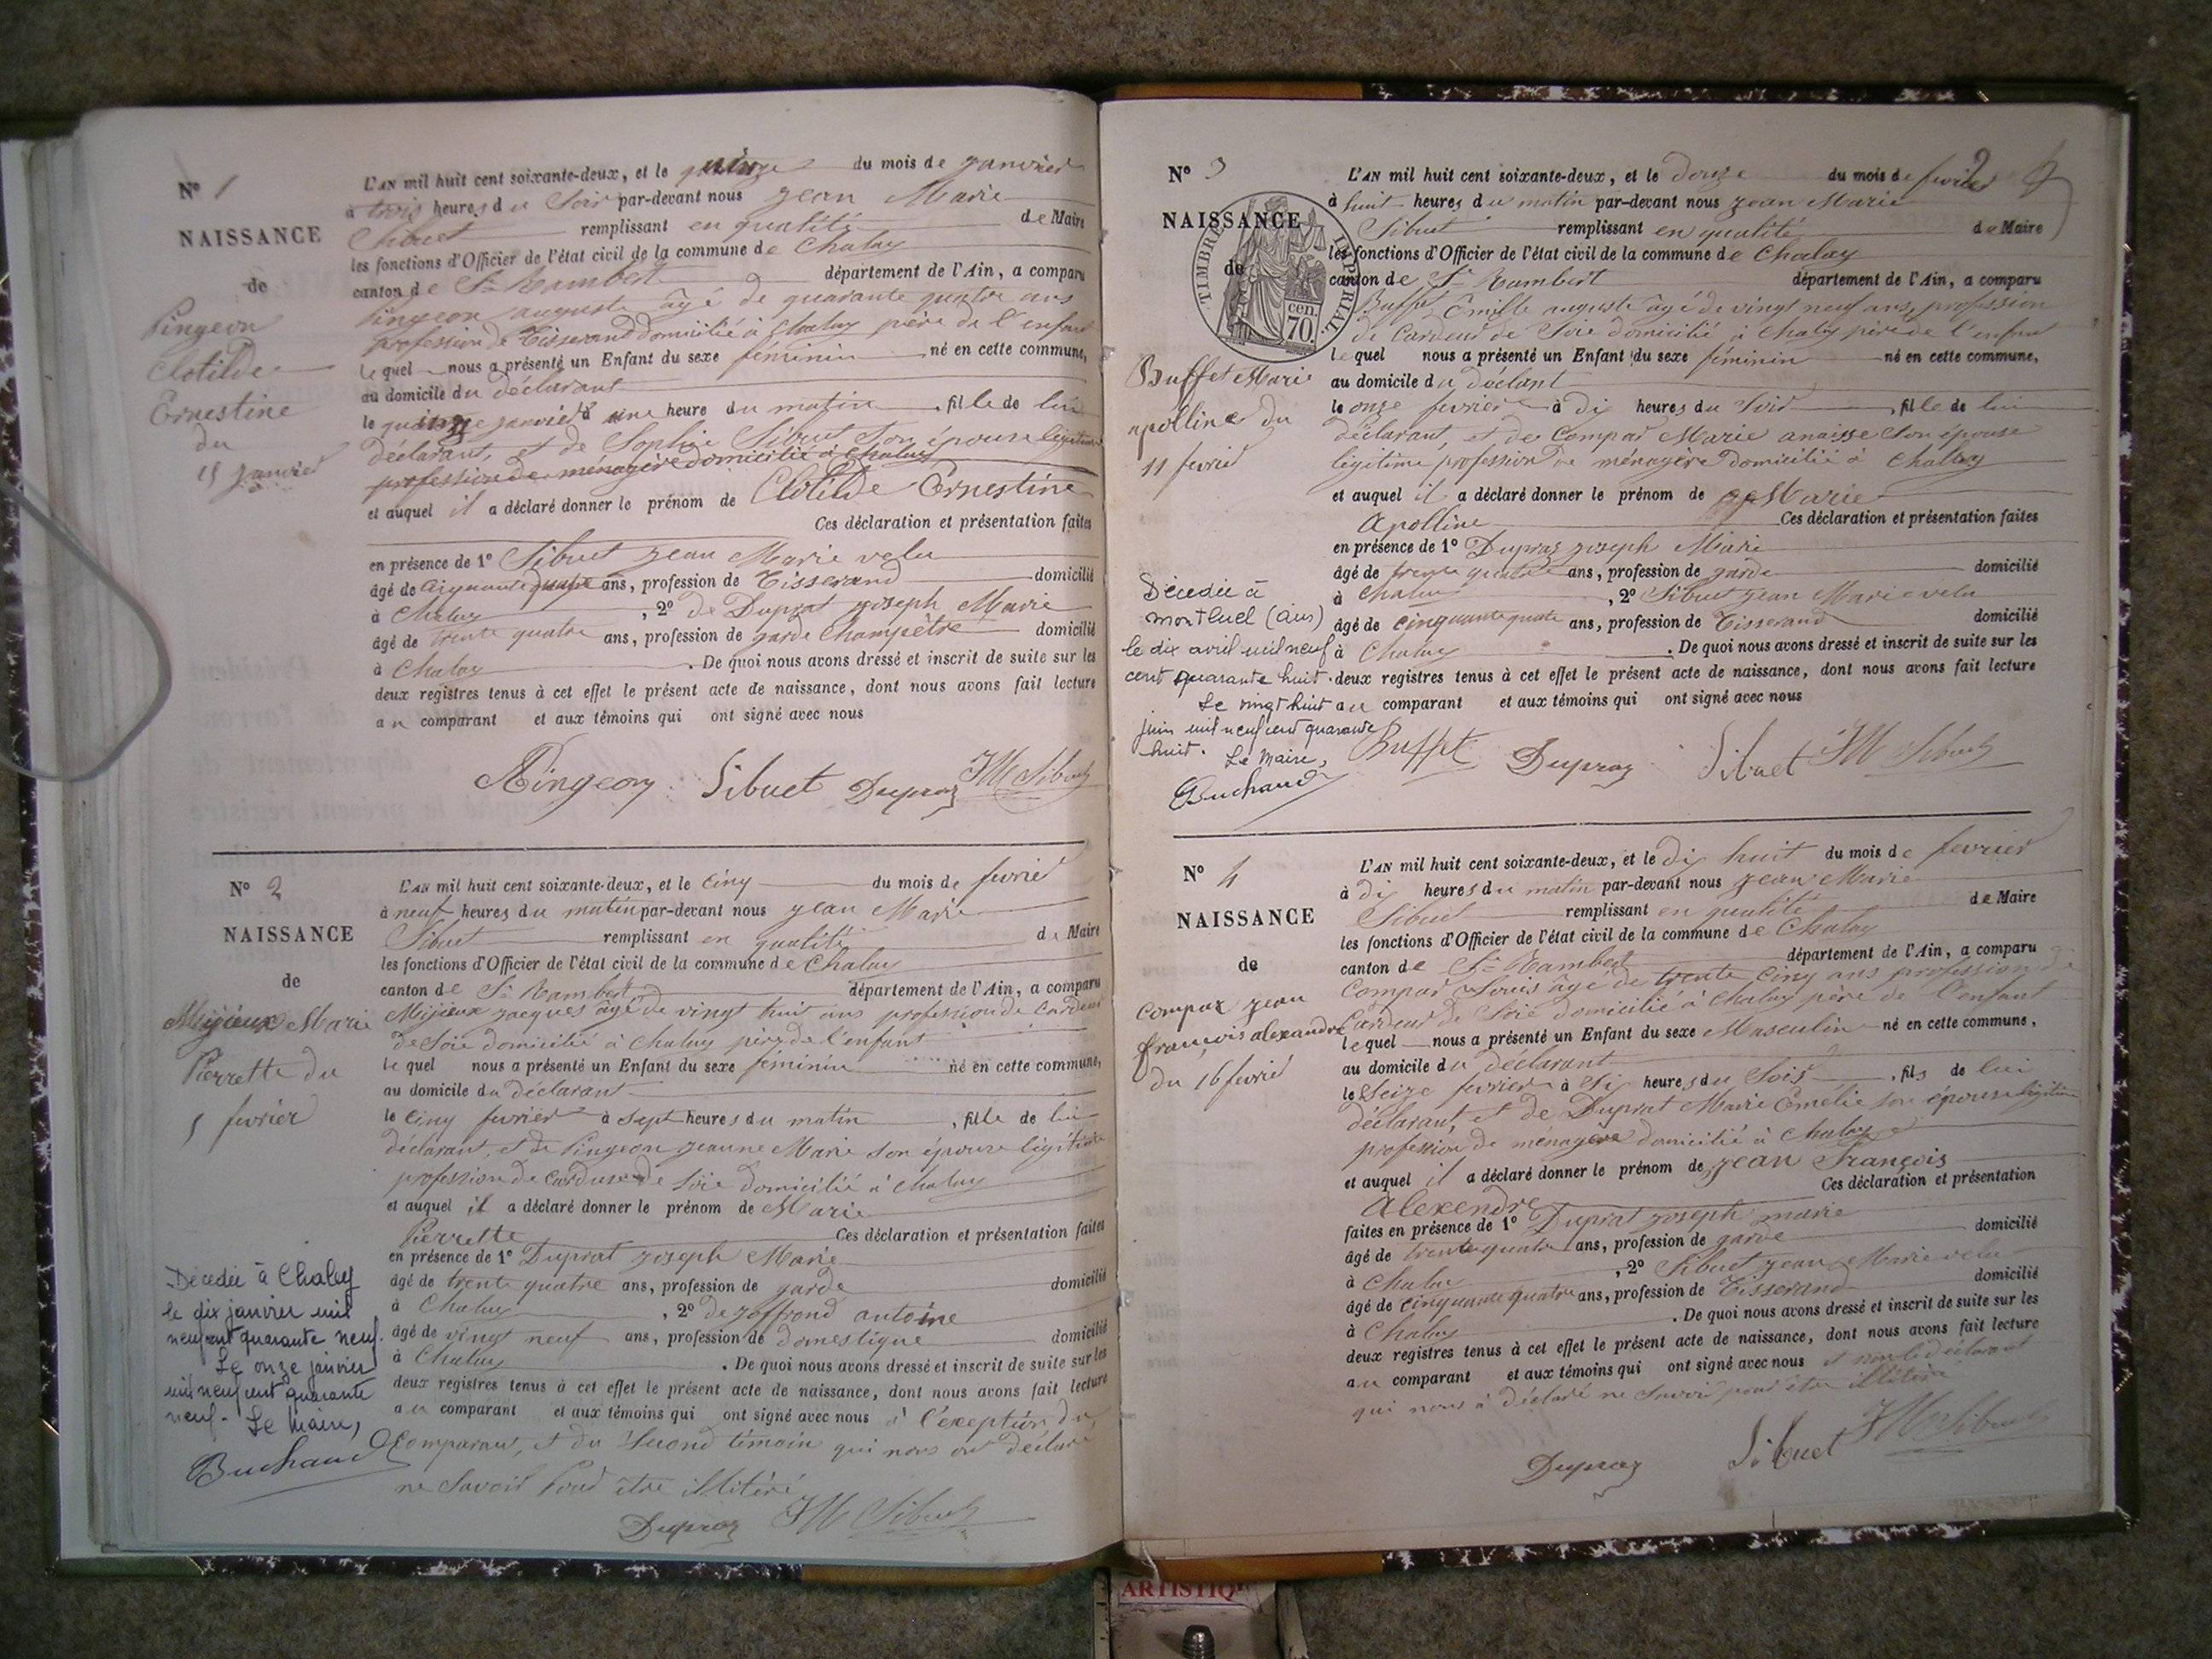 N° 1
NAISSANCE
de
Pingeon
Clotilde
Ernestine
du
15 janvier
L'AN mil huit cent soixante-deux, et le quinze du mois de janvier
à trois heures du soir par-devant nous jean Marie
Sibuet remplissant en qualité de Maire
les fonctions d'Officier de l'état civil de la commune de Chaley
canton de St Rambert département de l'Ain, a comparu
Pingeon auguste âgé de quarante quatre ans
profession de Tisserand domicilié à Chaley père de l'enfant
lequel nous a présenté un Enfant du sexe féminin né en cette commune,
au domicile du déclarant
le quinze janvier à une heure du matin, fille de lui
déclarant, et de Sophie Sibuet son épouse légitime
profession de ménagère domicilié à Chaley
et auquel il a déclaré donner le prénom de Clotilde Ernestine
Ces déclaration et présentation faites
en présence de 1° Sibuet jean Marie velu
âgé de cinquante quatre ans, profession de Tisserand domicilié
à Chaley, 2° de Duprat joseph Marie
âgé de trente quatre ans, profession de garde Champêtre domicilié
à Chaley. De quoi nous avons dressé et inscrit de suite sur les
deux registres tenus à cet effet le présent acte de naissance, dont nous avons fait lecture
au comparant et aux témoins qui ont signé avec nous
Pingeon Sibuet Dupraz JM Sibuet
N° 2
NAISSANCE
de
Mijieux Marie
Pierrette du
5 fevrier
L'AN mil huit cent soixante-deux, et le cinq du mois de fevrier
à neuf heures du matin par-devant nous jean Marie
Sibuet remplissant en qualité de Maire
les fonctions d'Officier de l'état civil de la commune de Chaley
canton de St Rambert département de l'Ain, a comparu
Mijieux jacques âgé de vingt huit ans profession de Cardeur
de Soie domicilié à Chaley père de l'enfant
lequel nous a présenté un Enfant du sexe féminin né en cette commune,
au domicile du déclarant
le cinq fevrier à sept heures du matin, fille de lui
déclarant, et de Pingeon jeanne Marie son épouse légitime
profession de Cardeuse de Soie domicilié à Chaley
et auquel il a déclaré donner le prénom de Marie
Pierrette Ces déclaration et présentation faites
en présence de 1° Duprat joseph Marie
âgé de trente quatre ans, profession de garde domicilié
à Chaley, 2° de joffrond antoine
âgé de vingt neuf ans, profession de domestique domicilié
à Chaley. De quoi nous avons dressé et inscrit de suite sur les
deux registres tenus à cet effet le présent acte de naissance, dont nous avons fait lecture
au comparant et aux témoins qui ont signé avec nous à l'exeption du
Comparant, et du second témoin qui nous ont déclaré
ne savoir pour être illitéré
Dupraz JM Sibuet
Décédée à Chaley
le dix janvier mil
neuf cent quarante neuf.
Le onze janvier
mil neuf cent quarante
neuf. Le Maire,
Buchaud
N° 3
NAISSANCE
de
TIMBRE IMPERIAL
70 cen.
Buffet Marie
apolline du
11 fevrier
2
L'AN mil huit cent soixante-deux, et le douze du mois de fevrier
à huit heures du matin par-devant nous jean Marie
Sibuet remplissant en qualité de Maire
les fonctions d'Officier de l'état civil de la commune de Chaley
canton de St Rambert département de l'Ain, a comparu
Buffet Emille auguste âgé de vingt neuf ans, profession
de Cardeur de Soie domicilié à Chaley père de l'enfant
lequel nous a présenté un Enfant du sexe féminin né en cette commune,
au domicile du déclant
le onze fevrier à dix heures du soir, fille de lui
déclarant, et de Compar Marie anaisse son épouse
légitime profession de ménagère domicilié à Chaley
et auquel il a déclaré donner le prénom de Marie
Apolline Ces déclaration et présentation faites
en présence de 1° Dupraz joseph Marie
âgé de trente quatre ans, profession de garde domicilié
à Chaley, 2° Sibuet jean Marie velu
âgé de cinquante quatre ans, profession de Tisserand domicilié
à Chaley. De quoi nous avons dressé et inscrit de suite sur les
deux registres tenus à cet effet le présent acte de naissance, dont nous avons fait lecture
au comparant et aux témoins qui ont signé avec nous
Buffet Dupraz Sibuet JM Sibuet
Décédée à
Montluel (Ain)
le dix avril mil neuf
cent quarante huit.
Le vingt huit
juin mil neuf cent quarante
huit. Le Maire,
Buchaud
N° 4
NAISSANCE
de
Compar jean
françois alexandre
du 16 fevrier
L'AN mil huit cent soixante-deux, et le dix huit du mois de fevrier
à dix heures du matin par-devant nous jean Marie
Sibuet remplissant en qualité de Maire
les fonctions d'Officier de l'état civil de la commune de Chaley
canton de St Rambert département de l'Ain, a comparu
Compar Louis âgé de trente cinq ans profession de
Cardeur de Soie domicilié à Chaley père de l'enfant
lequel nous a présenté un Enfant du sexe Masculin né en cette commune,
au domicile du déclarant
le Seize fevrier à six heures du Soir, fils de lui
déclarant, et de Duprat Marie Emélie son épouse légitime
profession de ménagère domicilié à Chaley
et auquel il a déclaré donner le prénom de jean François
Alexendre Ces déclaration et présentation
faites en présence de 1° Duprat joseph marie
âgé de trente quatre ans, profession de garde domicilié
à Chaley, 2° Sibuet jean Marie velu
âgé de cinquante quatre ans, profession de Tisserand domicilié
à Chaley. De quoi nous avons dressé et inscrit de suite sur les
deux registres tenus à cet effet le présent acte de naissance, dont nous avons fait lecture
au comparant et aux témoins qui ont signé avec nous et non le déclarant
qui nous à déclaré ne savoir pour être illitéré
Dupraz Sibuet JM Sibuet
ARTISTIQ